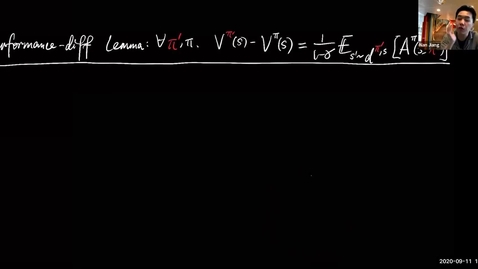 rformance-diff Lemma: ∀π',π. V^π'(s) - V^π(s) = 1/(1-γ) E_{s'~d^{π',s}} [A^π(s', π')]
Nan Jiang
2020-09-11 1